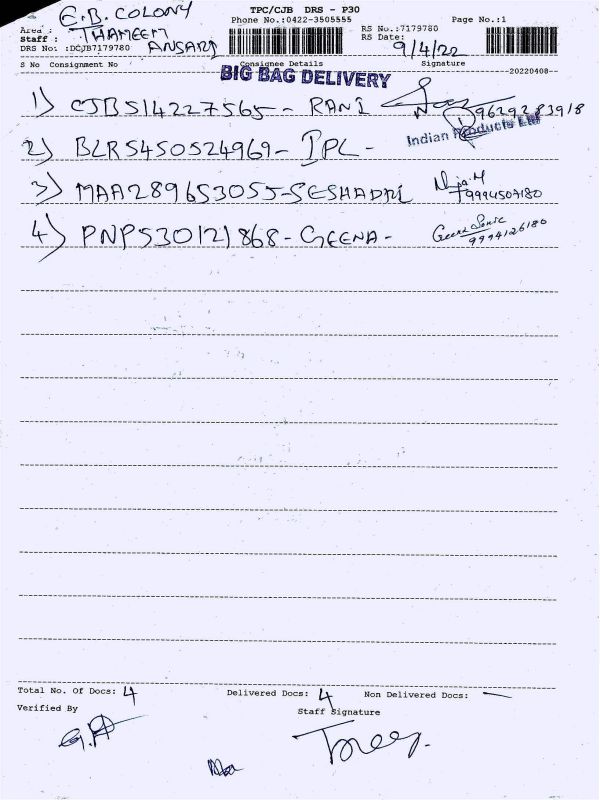 TPC/CJB DRS - P30
E.B. COLONY
Phone No.:0422-3505555 Page No.:1
Area :
RS No.:7179780
Staff : THAMEEM ANSARI
RS Date: 9/4/22
DRS No :DCJB7179780
S No Consignment No Consignee Details Signature
20220408
BIG BAG DELIVERY
1) CJB514227565 - RANI 9629283918
Indian Products Ltd
2) BLR5450524969 - IPL -
3) MAA289653055 - SESHADRI
9994507180
4) PNP530121868 - GEENA - 9994126180
Total No. Of Docs: 4 Delivered Docs: 4 Non Delivered Docs: —
Verified By Staff Signature